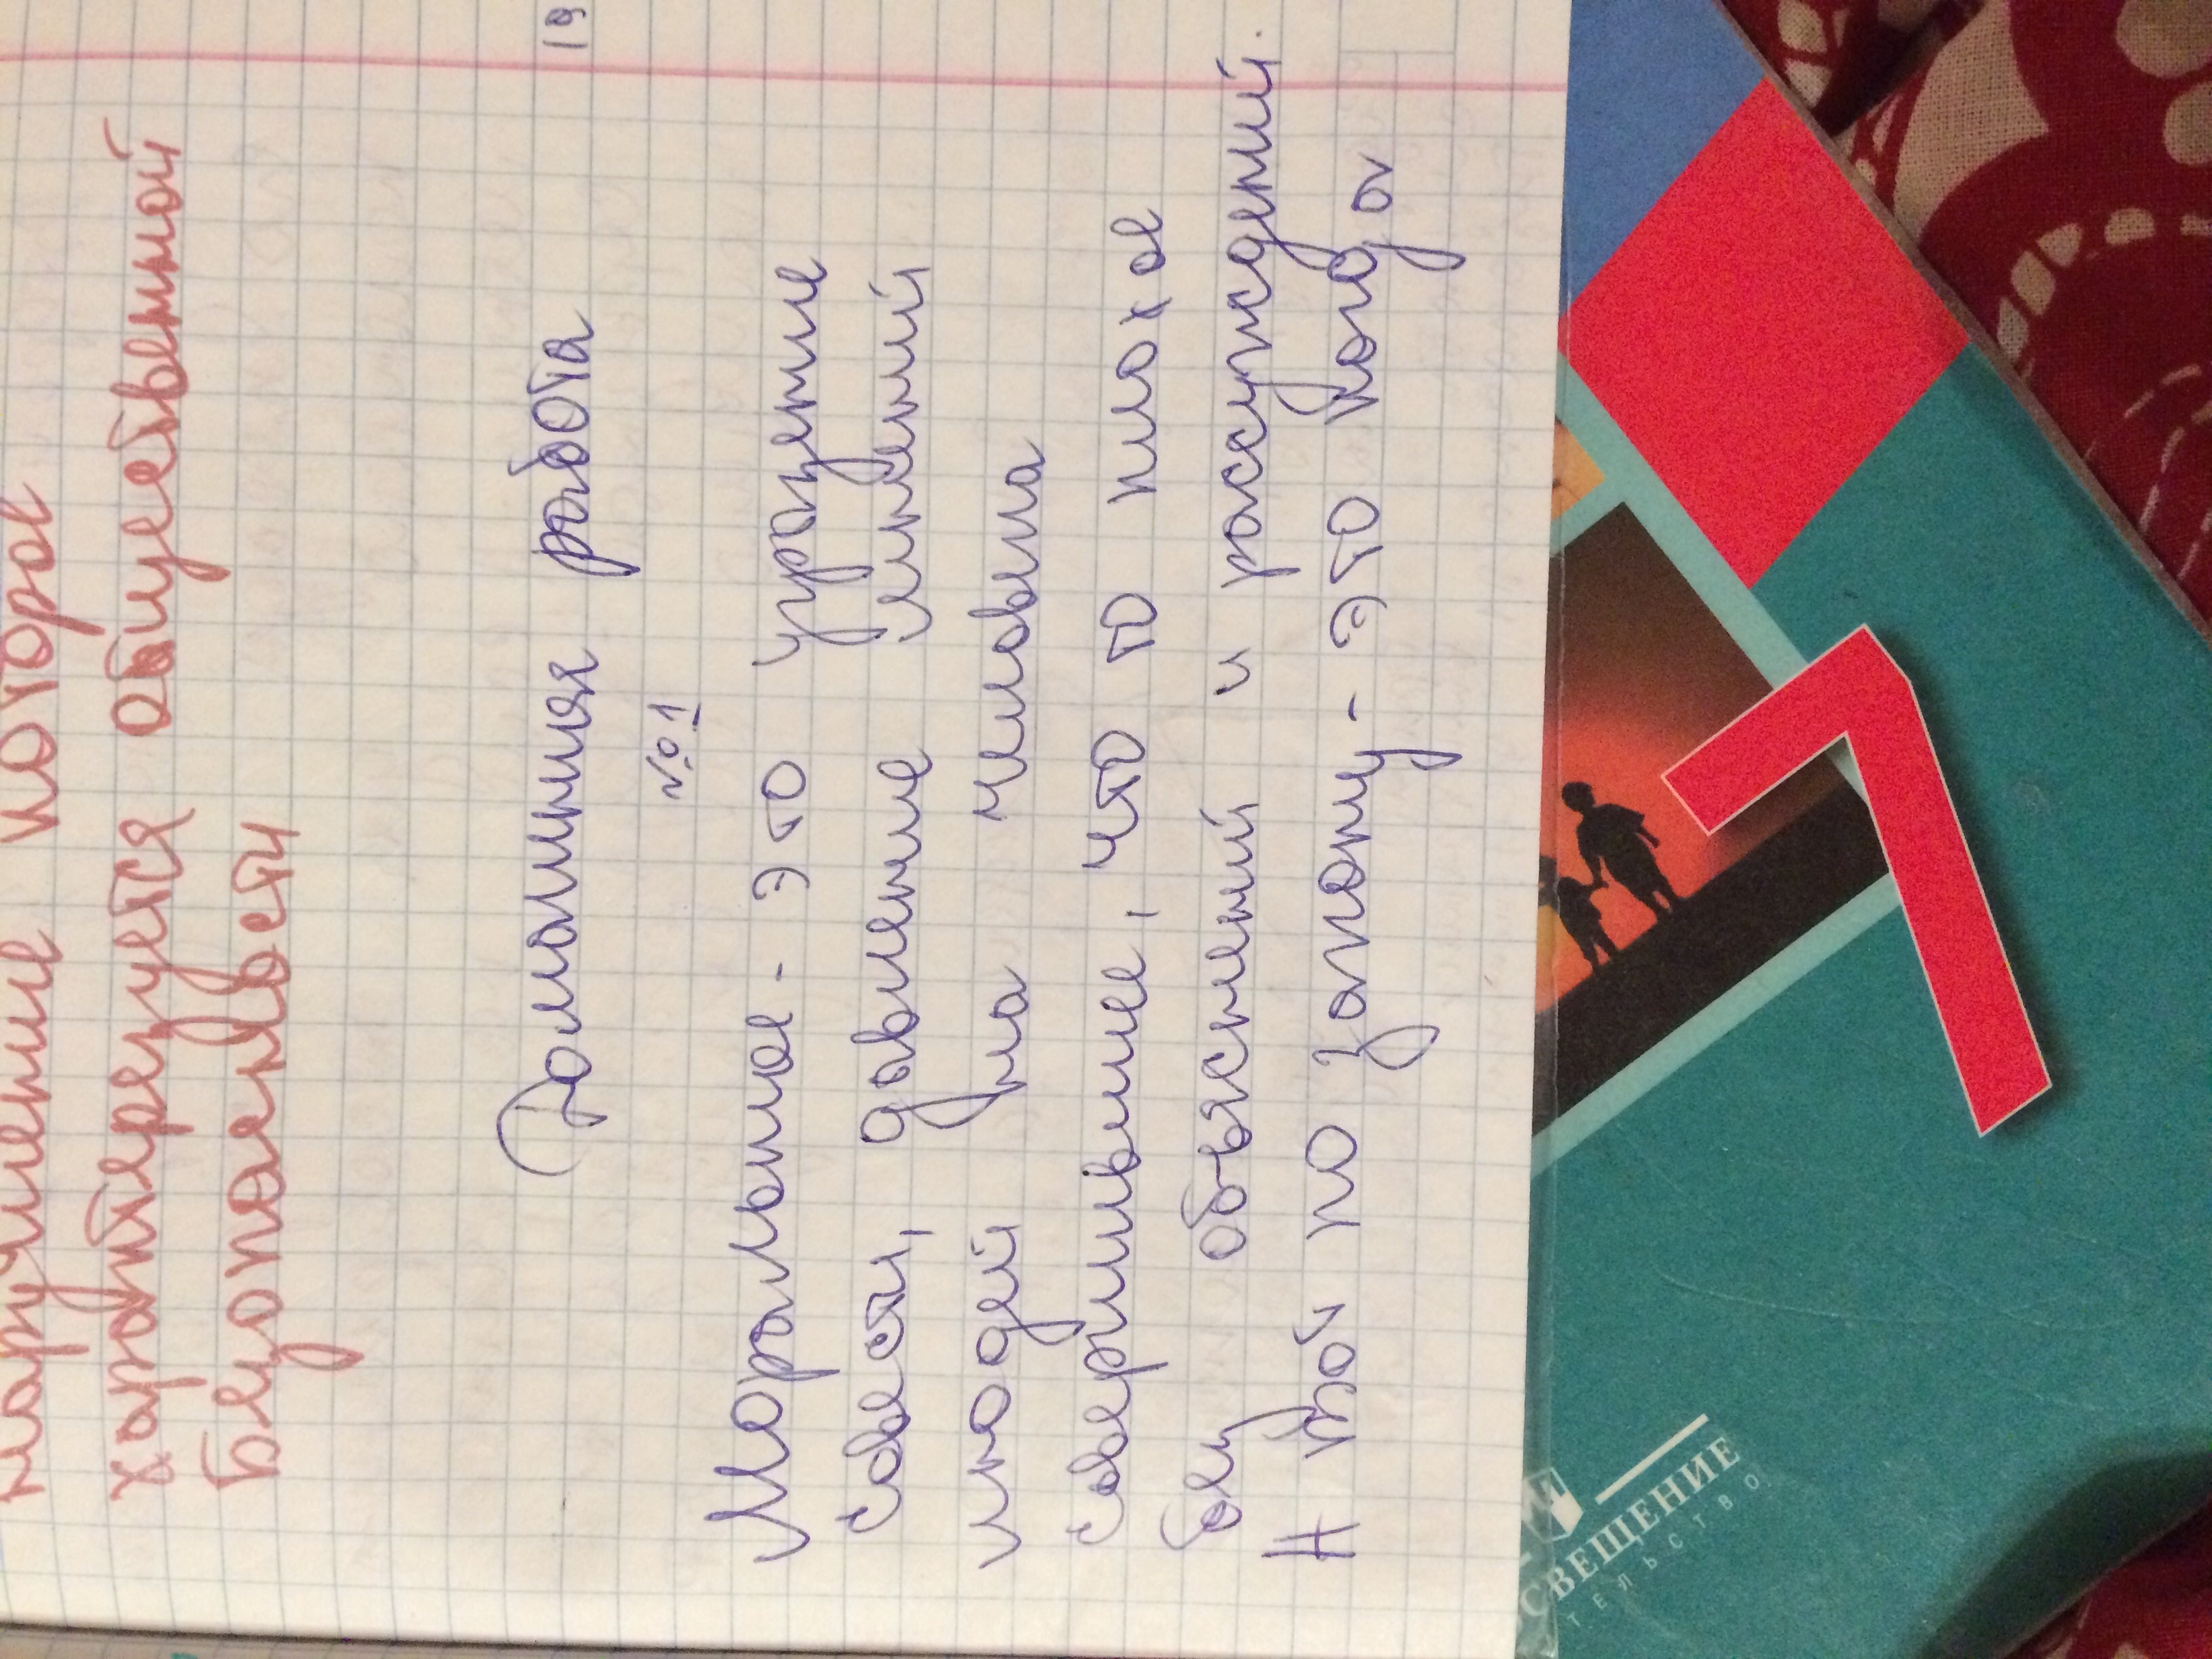 нарушение которое
характерезуется общественной
безопасности
Домашняя работа
19
№1
Моральное - это угрозение
совести, давление мнений
людей на человека
совершившее, что то плохое
без объяснений и рассуждений.
Н твот по закону - это когда
СВЕЩЕНИЕ
ТЕЛЬСТВО
7